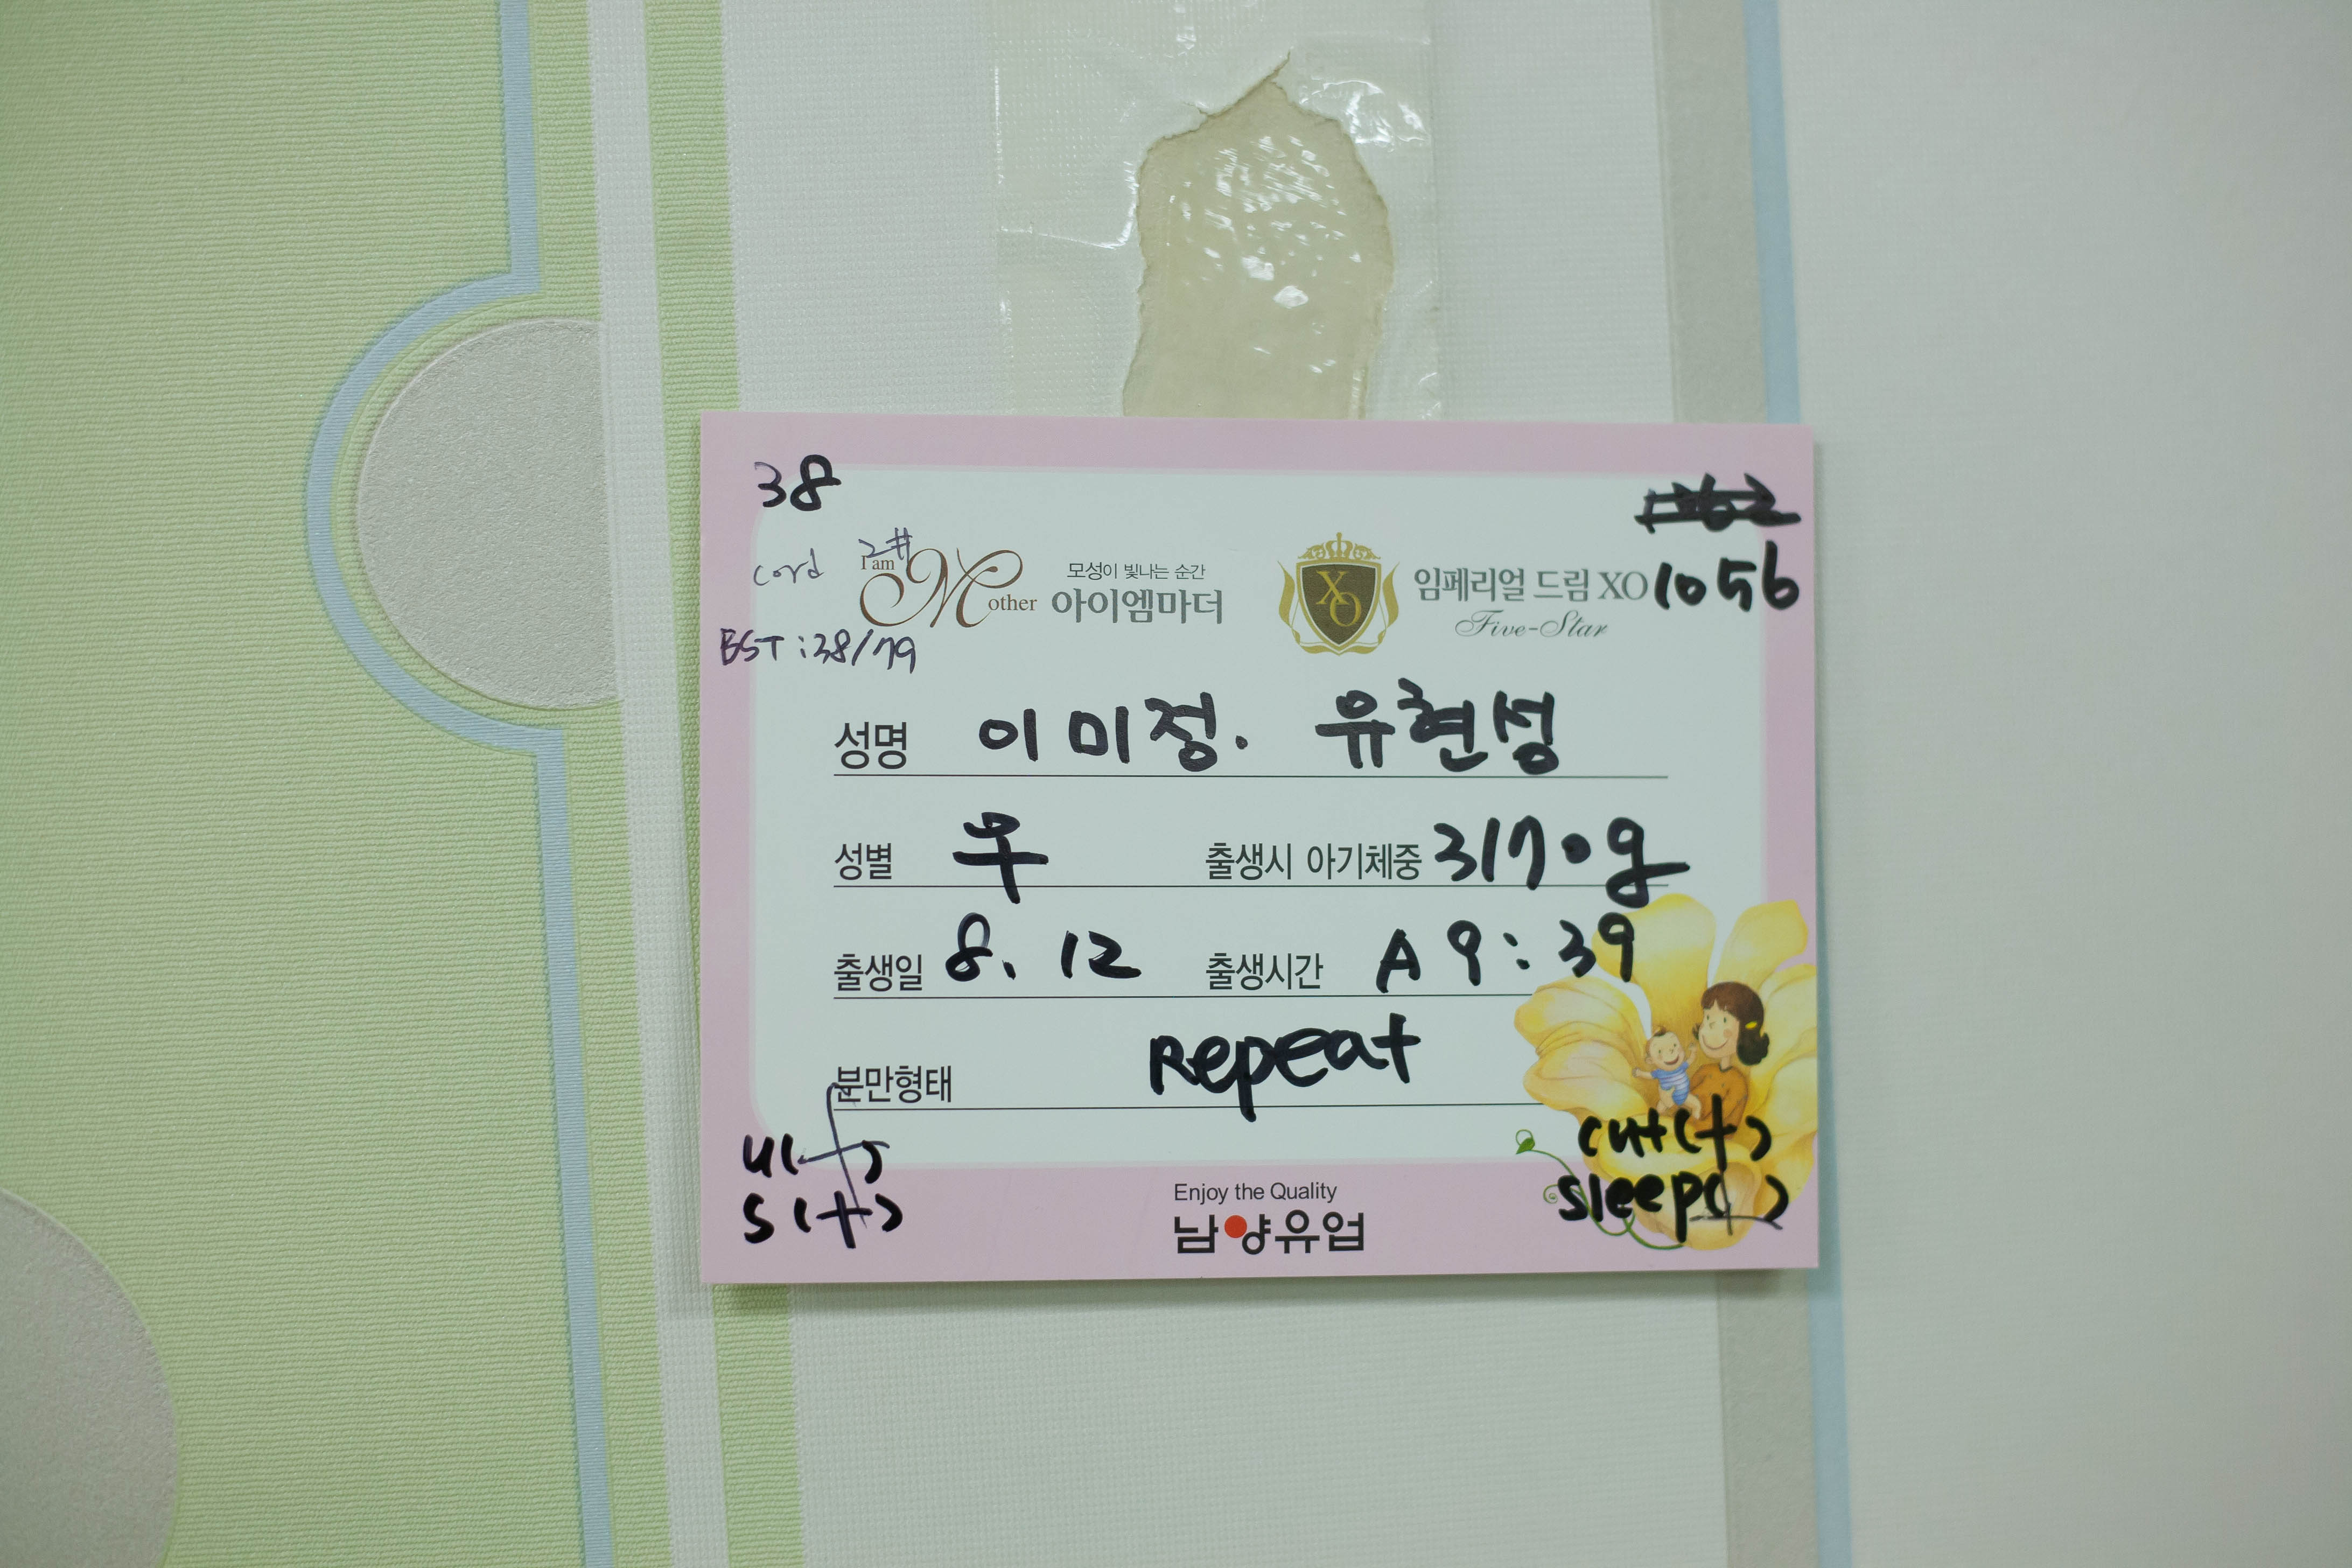 38
cord 2#
1056
I am Mother 모성이 빛나는 순간 아이엠마더
XO 임페리얼 드림 XO
Five-Star
BST : 38/79
성명 이미정. 유현성
성별 우 출생시 아기체중 3170g
출생일 8. 12 출생시간 A 9 : 39
분만형태 Repeat
u(+) cut(+)
s(+) sleep(+)
Enjoy the Quality
남양유업